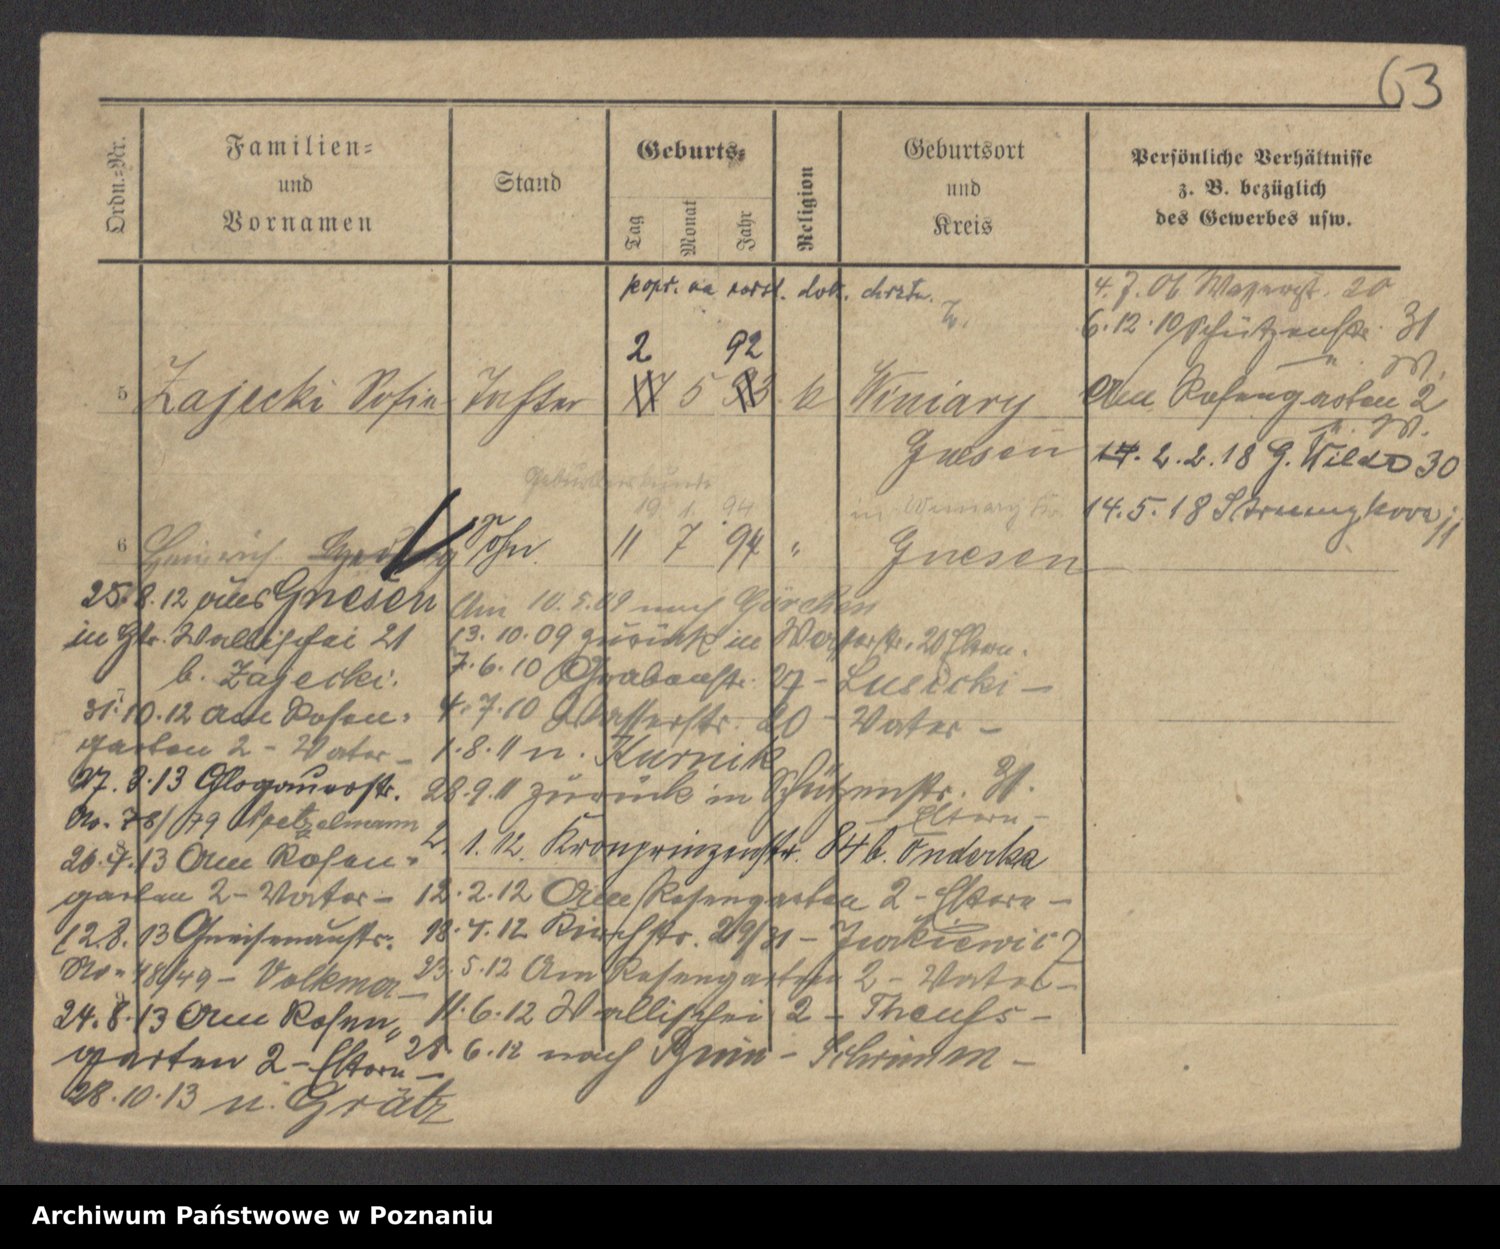 63
Ordn.-Nr.
Familien-
und
Vornamen
Stand
Geburts-
Tag
Monat
Jahr
Religion
Geburtsort
und
Kreis
Persönliche Verhältnisse
z. B. bezüglich
des Gewerbes usw.
4.7.06 20
6.12.10 Schützenstr. 31
2 92
5 Zajecki Sofie Tochter 5 k Winiary
Gnesen
Am Rosengarten 2
2.2.18 G. Wilda 30
Geburtsurkunde
19. 1. 94
in Winiary Kr.
14.5.18 11
6 Heinrich Sohn 11 7 94 " Gnesen
25.8.12 aus Gnesen
in Wallischei 21
b. Zajecki.
31.10.12 Am Rosen-
garten 2 - Vater -
27.3.13 Glogauerstr.
No. 78/79
26.4.13 Am Rosen-
garten 2 - Vater -
12.8.13 Gneisenaustr.
No. 48/49 - Volkmer -
24.8.13 Am Rosen-
garten 2 - Eltern -
28.10.13 n. Grätz
Am 10.5.09 nach Görchen
13.10.09 zurück in Wasserstr. 20 Eltern.
7.6.10 Grabenstr. 27 - Lusicki -
4.7.10 Wasserstr. 20 - Vater -
1.8.11 n. Kurnik
28.9.11 zurück in Schützenstr. 31.
Eltern -
2.1.12 Kronprinzenstr. 84 b.
12.2.12 Am Rosengarten 2 - Eltern -
18.4.12 Kirchstr. 29/31 - Jurkiewicz
23.5.12 Am Rosengarten 2 - Vater -
11.6.12 Wallischei 2 -
28.6.12 nach Bnin - Schrimm -
Archiwum Państwowe w Poznaniu